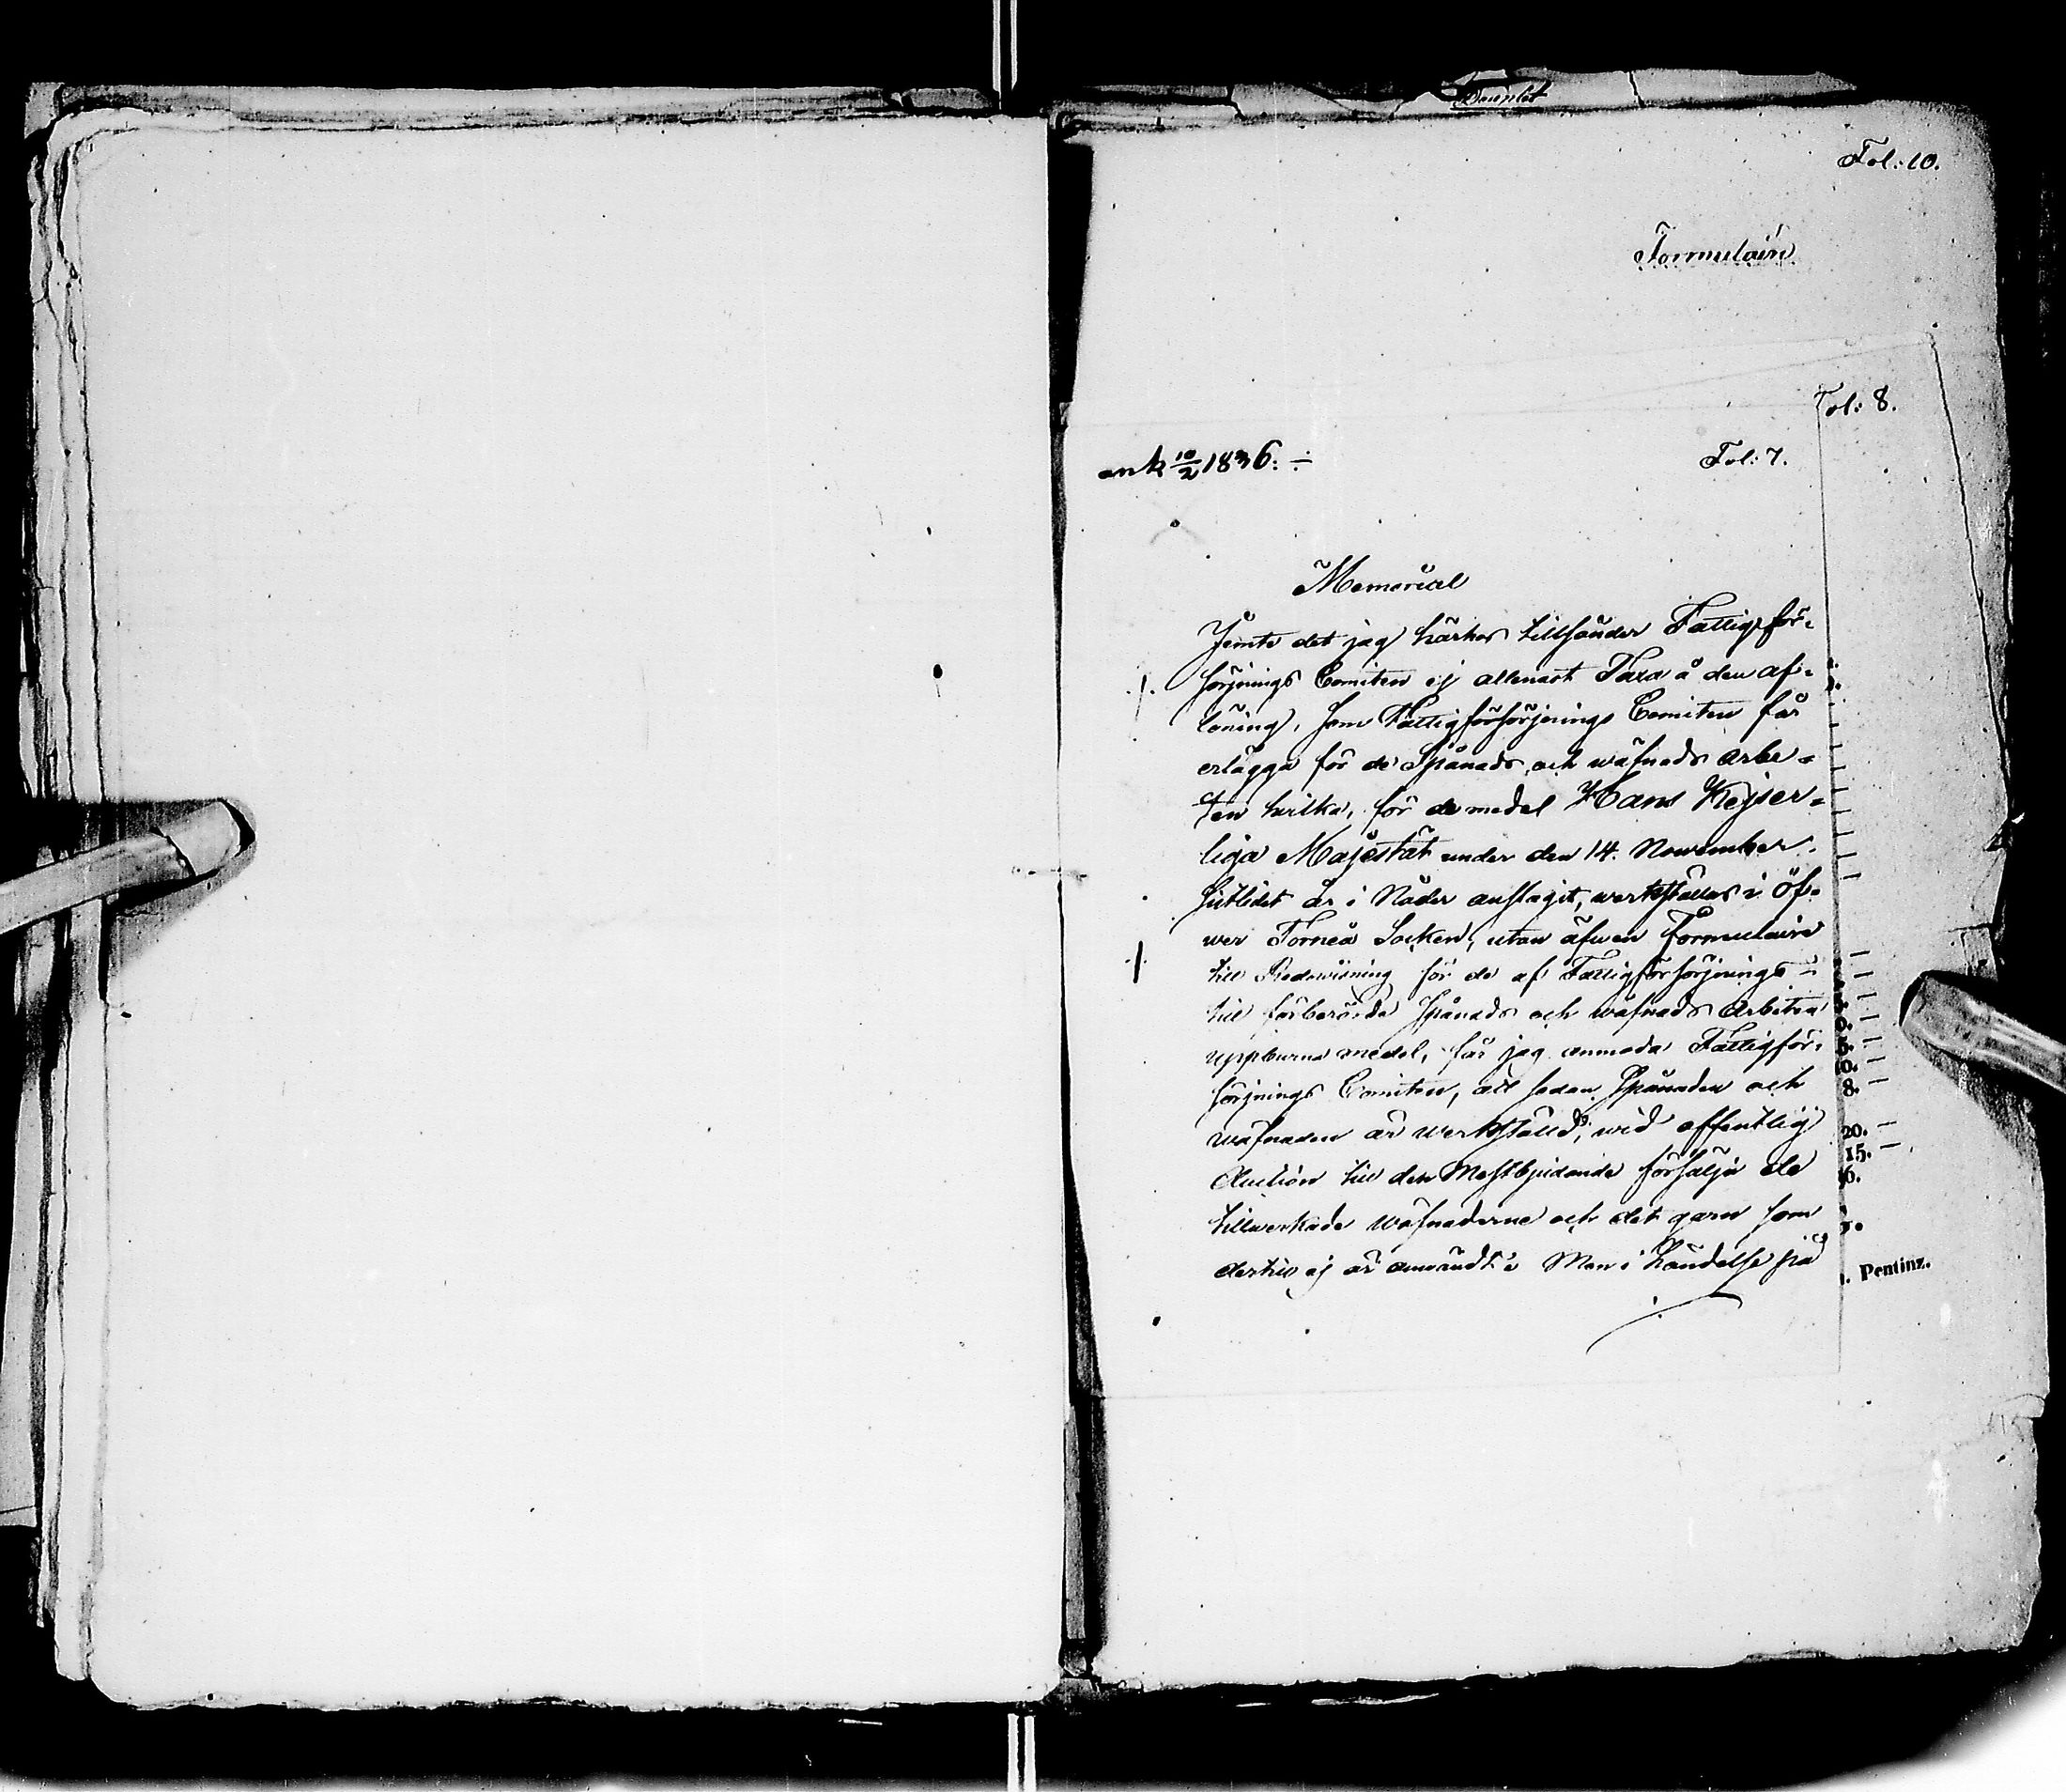 Fol: 10.
Formulair
Fol: 8.
ank 10/2 1836. ÷
Fol: 7.
Memorial
Jemte det jag härhos tillsänder Fattigför-
sörjnings Comiten ej allenast Taxa å den af-
löning, som Fattigförsörjnings Comiten får
erlägga för de Spånads och wäfnads arbe-
ten hvilka, för de medel Hans Kejser-
liga Majestät under den 14. November
sistlidet år i Nåder anslagit, werkställas i Öf-
wer Torneå Socken, utan äfwen Formulaire
till Redowisning för de af Fattigförsörjnings
till förberörde spånads och wäfnads Arbeten
uppburne medel, får jag anmoda Fattigför-
sörjnings Comiten, att sedan Spånaden och
wäfnaden är werkställd, wid offentlig
Auction till den Mestbjudande försälja de
tillwerkade wäfnaderne och det garn som
dertill ej är anwändt. Men i händelse på
8.
20.
15.
Pentinz.